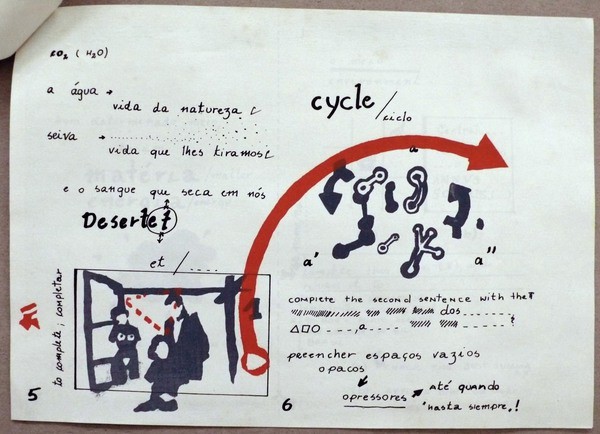 CO₂ (H₂O)
a água →
vida da natureza
seiva →
vida que lhes tiramos
e o sangue que seca em nós
Desertet
et /
to complete ; completar
5
cycle / ciclo
a
a'
a"
complete the second sentence with the
dos
a
preencher espaços vazios
opacos
opressores
até quando
hasta siempre.!
6